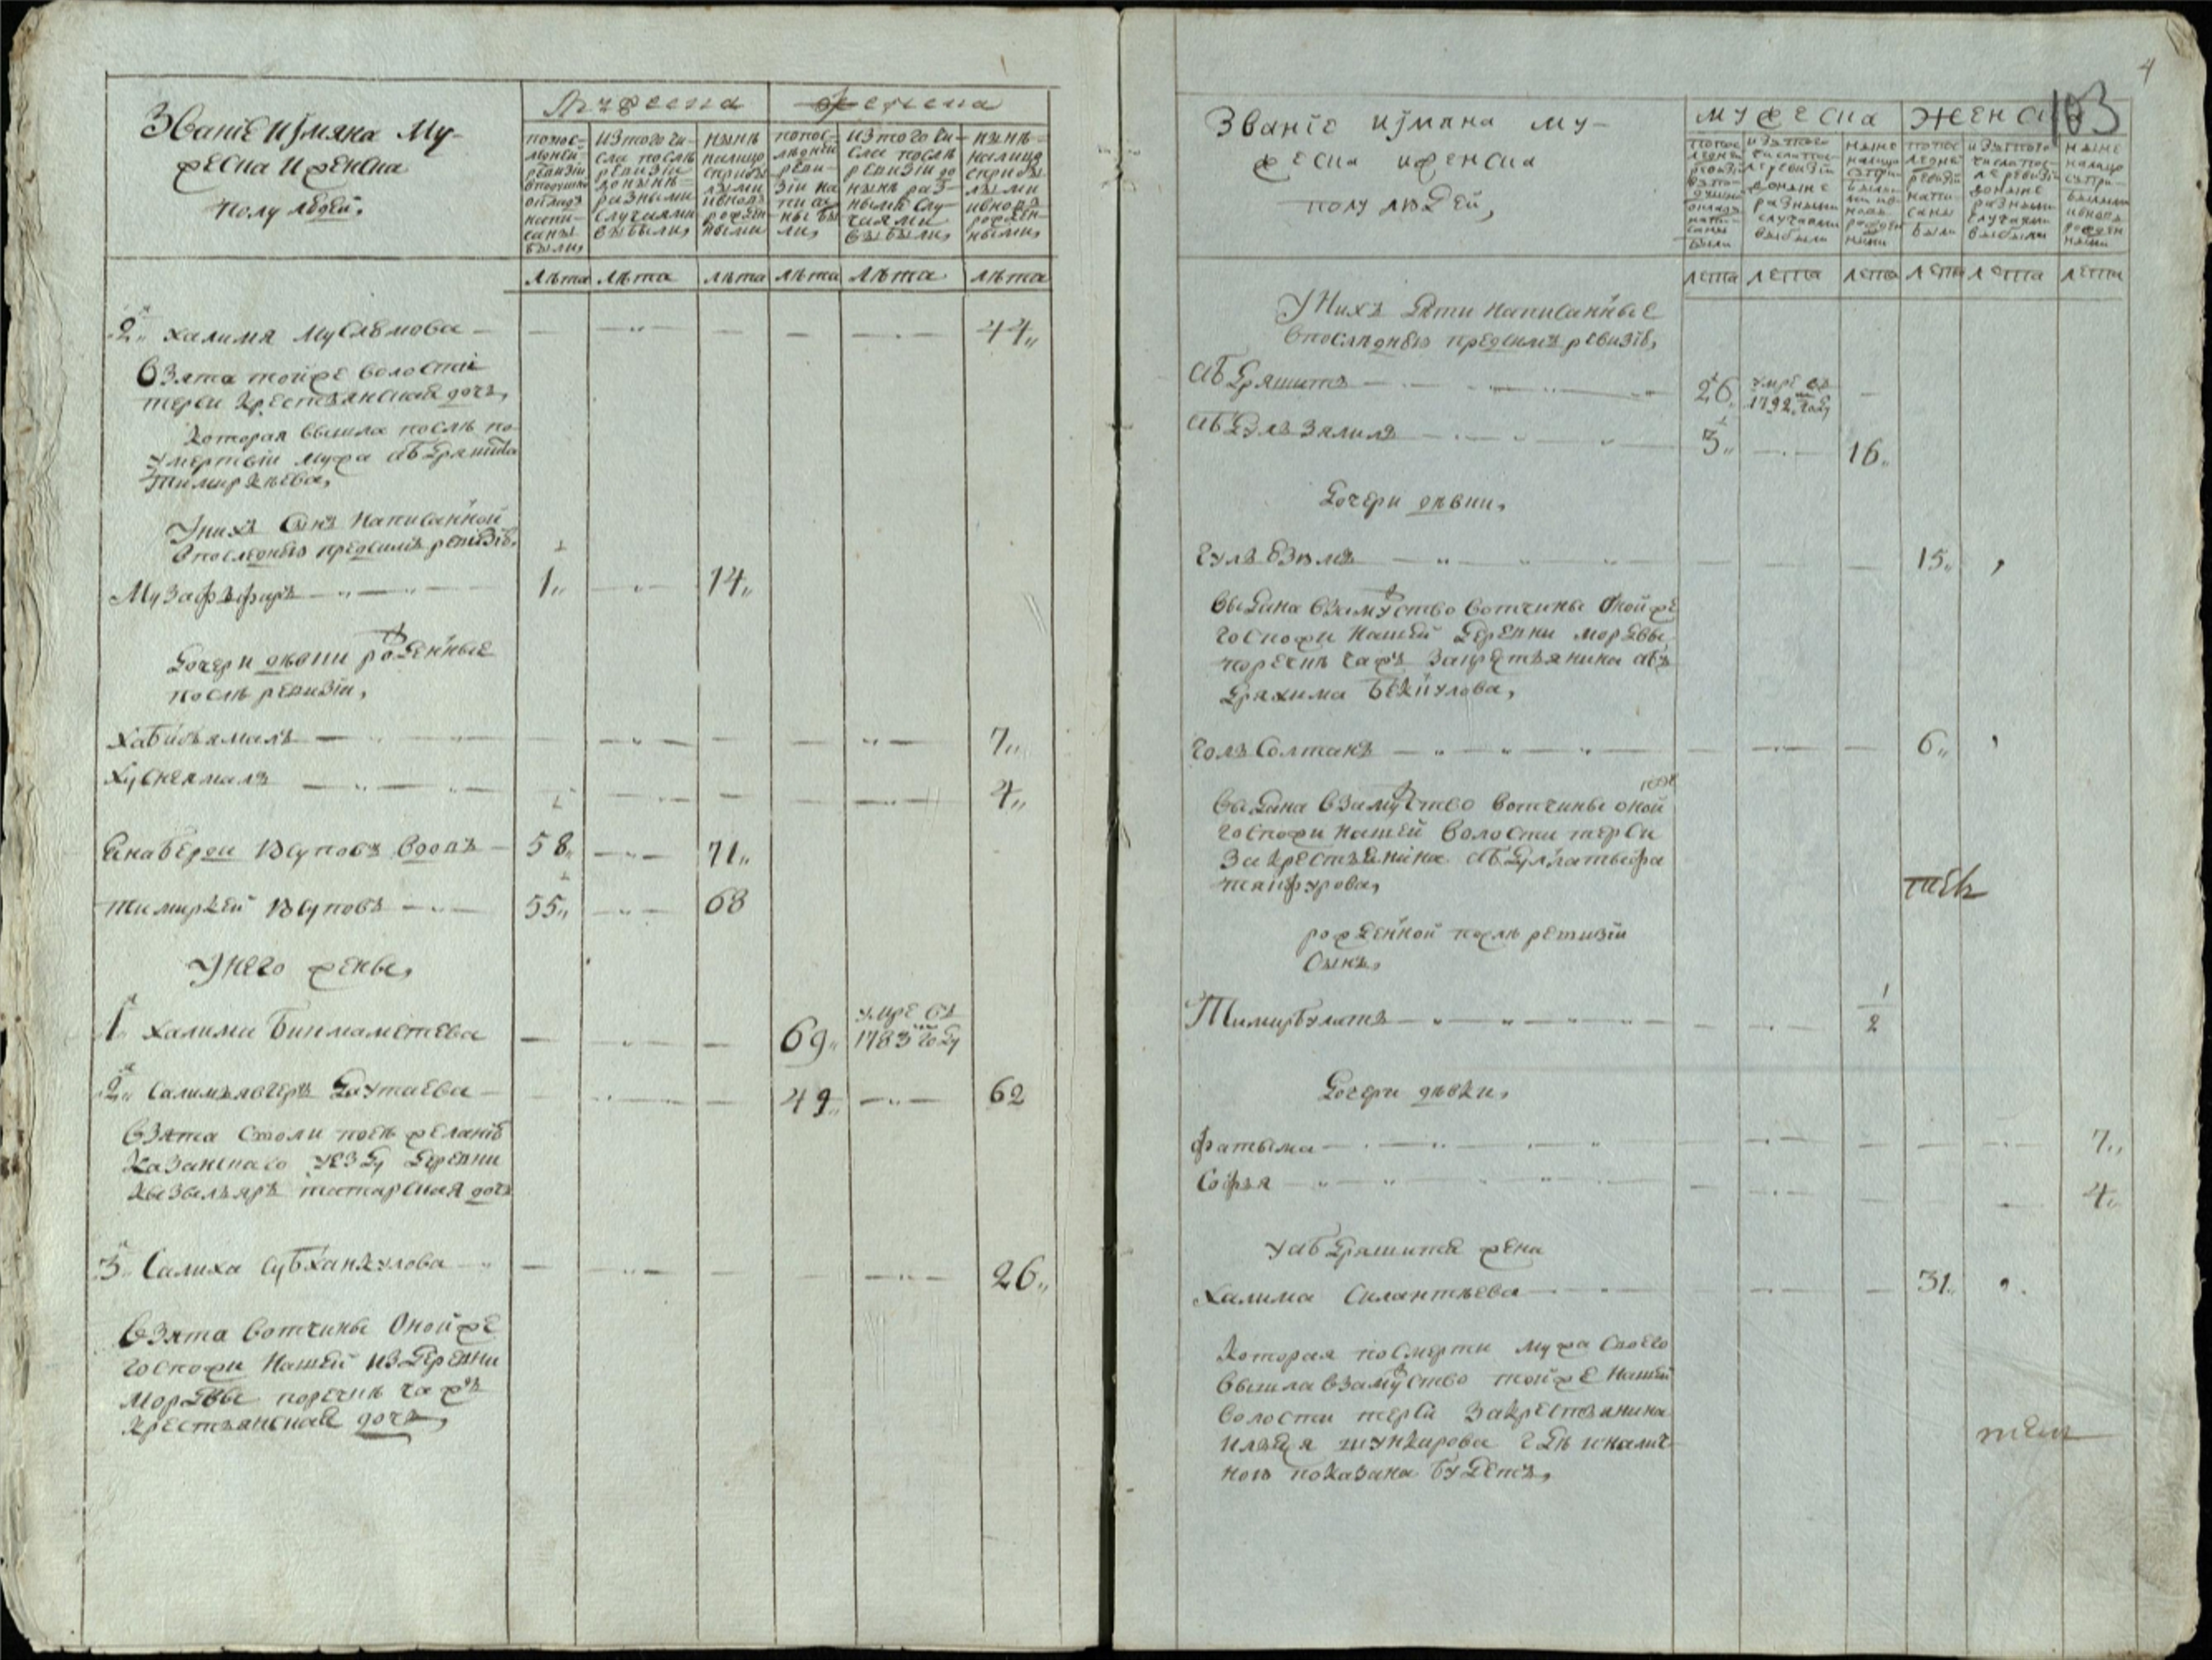 Званіе иімяна му-
жеска и женска
полу людей,
Мужеска
женска
попос-
лѣдней
ревизіи
вподушно
окладъ
напи-
саны
были,
изтого чи-
сла послѣ
ревизіи
донынѣ
разными
случаями
выбыли,
нынѣ
налицо
сприбы
лыми
ивновь
рожден
ными
попос-
лѣдней
реви-
зіи на
писа
ны бы
ли,
изтого чи-
сла послѣ
ревизіи до
нынѣ раз-
ными слу-
чаями
выбыли,
нынѣ
налицо
сприбы
лыми
ивновь
рожден
ными,
лѣта лѣта лѣта лѣта лѣта лѣта
2я халимя Муслѣмова — 44
Взята тойже волости
терси крестьянская дочь,
которая вышла послѣ по-
умертвіи мужа абдряшита
тимиркѣева,
Униxъ сынъ написанной
впоследнею предсимъ ревизіею
Музафъфаръ 1 14
Дочери дѣвки рожденные
после ревизіи,
хабибъямалъ 7
хуснеямалъ 4
Янабердеи Юсуповъ вдовъ 58 71
тимиркей Юсуповъ 55 68
Унего жены,
1я халими Бикмаметева 69 умре въ
1783м году
2я салимъявгеръ Даутаева 49 62
взята сжоли поея желанію
казанскаго уезду деревни
кызылъяръ татарская дочь
3я Салиха субханкулова 26
взята вотчины оной же
госпожи нашей издеревни
мордвы поречик гажъ
крестьянская дочь,
4
103
Званіе иімяна му-
жеска иженска
полу людей,
мужеска
женска
попос
ледней
ревизіи
вподушно
окладъ
напи-
саны
были
изътого
числа пос-
ле ревизіи
доныне
разными
случаями
выбыли
ныне
налицо
съпри-
былы-
ми ив-
новь
рожден
ными
попос
ледней
ревизіи
напи-
саны
были
изътого
числа пос-
ле ревизіи
доныне
разными
случаями
выбыли
ныне
налицо
съпри-
былыми
ивновь
рожден
ными
лета лета лета лета лета лета
Униxъ дѣти написанные
впоследнею предсимъ ревизіею,
абдряшитъ 26 умре въ
1792м году
абдулвзялилъ 3 16
Дочери дѣвки,
гулъбзямя 15
выдана взамужство вотчины оной же
госпожи нашей деревни мордвы
поречик гажъ закрестьянина абъ
дряхима беккулова,
голъсолтанъ 6
выдана взамужство вотчины оной же
госпожи нашей волости терси
закрестьянина абдуллатыфа
таифурова,
рожденной послѣ ревизіи
сынъ,
Тимирбулатъ 1/2
Дочери дѣвки,
фатыма 7
Софья 4
Уабдряшита жена
халима силантьева 31
которая посмерти мужа своего
вышла взамужство тойже нашей
волости терси закрестьянина
ильяся шункарова гдѣ иналич
ною показана будетъ,